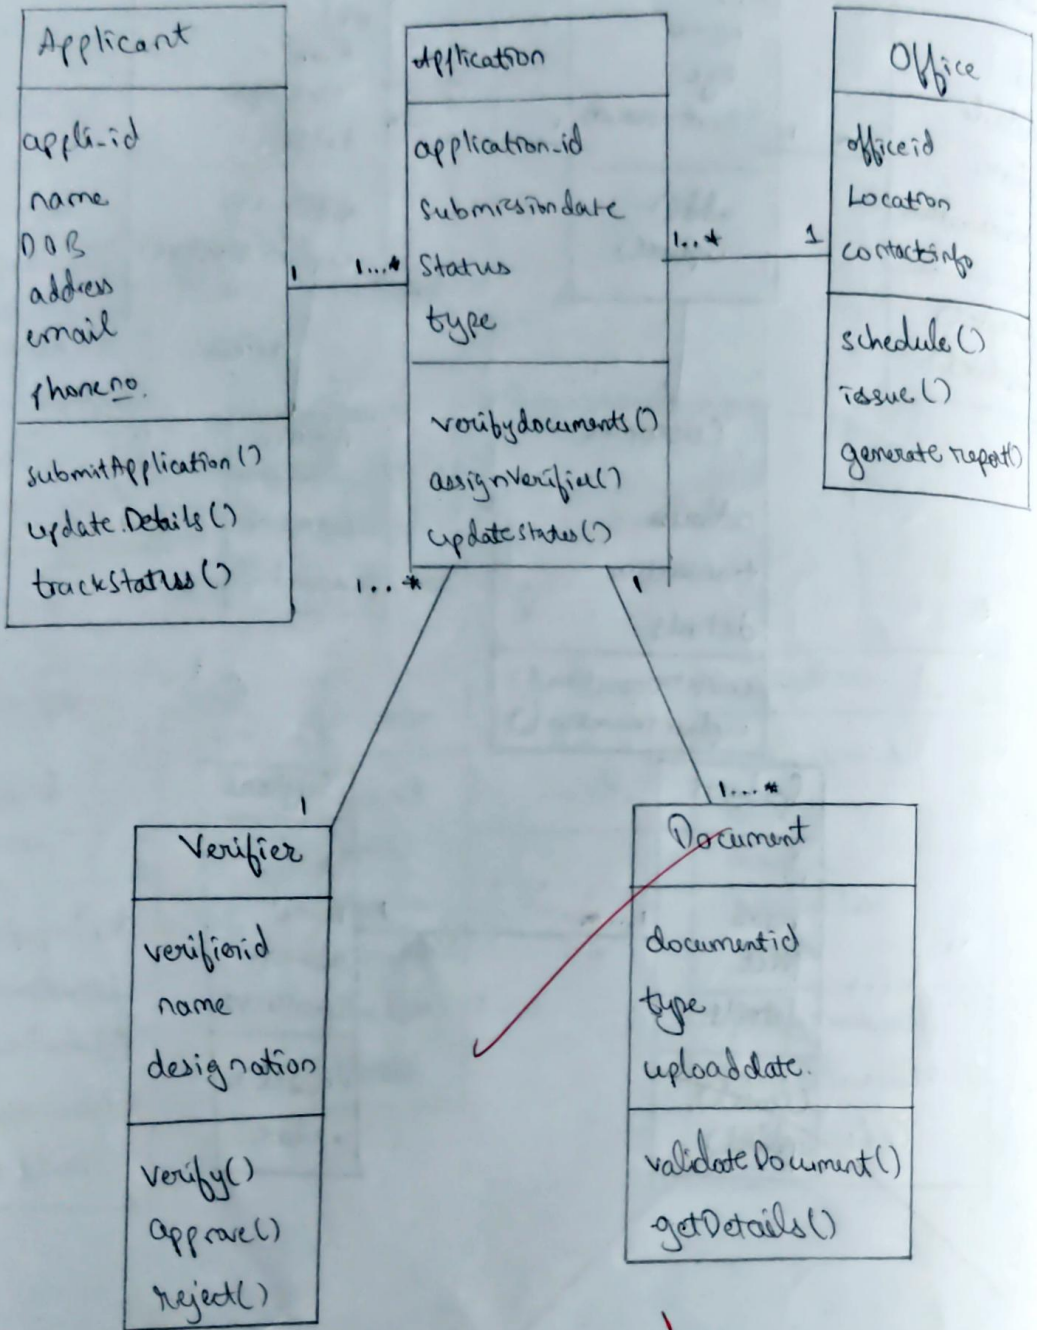 Applicant
appli_id
name
DOB
address
email
phoneno.
submitApplication()
update.Details()
trackStatuss()
1
1...*
Application
application_id
Submissiondate
Status
type
verifydocuments()
assignVerifier()
updatestatus()
1..*
1
Office
officeid
Location
contactinfo
schedule()
issue()
generate report()
1...*
1
1
1...*
Verifier
verifierid
name
designation
verify()
approve()
reject()
Document
documentid
type
uploaddate.
validateDocument()
getDetails()